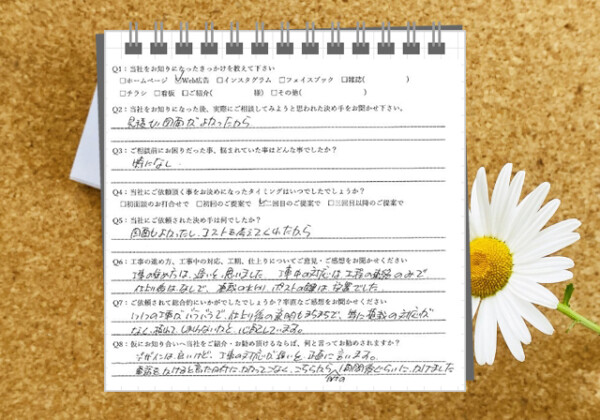 Q1：当社をお知りになったきっかけを教えて下さい
□ホームページ ☑Web広告 □インスタグラム □フェイスブック □雑誌( )
□チラシ □看板 □ご紹介( 様) □その他( )
Q2：当社をお知りになった後、実際にご相談してみようと思われた決め手をお聞かせ下さい。
見積もり 図面がよかったから
Q3：ご相談前にお困りだった事、悩まれていた事はどんな事でしたか？
特になし.
Q4：当社にご依頼頂く事をお決めになったタイミングはいつでしたでしょうか？
□初面談のお打合せで □初回のご提案で ☑二回目のご提案で □三回目以降のご提案で
Q5：当社にご依頼された決め手は何でしたか？
図面もよかったし、コストも考えてくれたから
Q6：工事の進め方、工事中の対応、工期、仕上りについてご意見・ご感想をお聞かせください
工事の進め方は、遅いと思いました 工事中の対応は 工程の連絡のみで
仕上り前はなしで、
ポストの鍵は、
でした.
Q7：ご依頼されて総合的にいかがでしたでしょうか？率直なご感想をお聞かせください
1つ1つの工事がバラバラで、仕上り後の
まちまちで、特に
の対応が
心配しています。
Q8：仮にお知り合いへ当社をご紹介・お勧め頂けるならば、何と言ってお勧めされますか？
デザインは良いけど、工事の対応が遅いと 正直に言います。